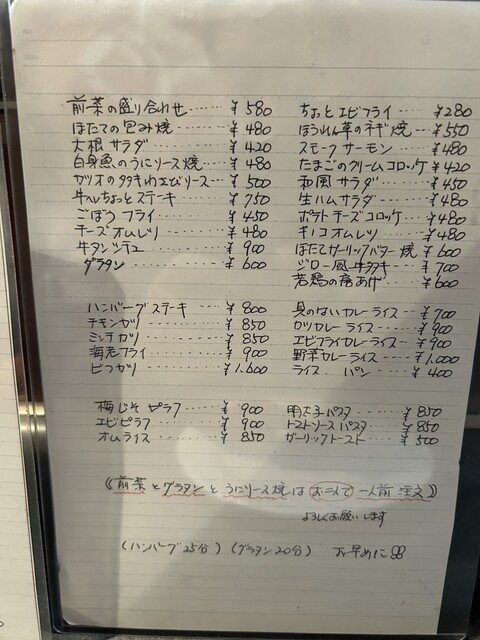 前菜の盛り合わせ……￥580
ほたての包み焼……￥480
大根サラダ……￥420
白身魚のうにソース焼…￥480
カツオのタタキわさびソース…￥500
牛ヘレちょっとステーキ…￥750
ごぼうフライ……￥450
チーズオムレツ……￥480
牛タンシチュー……￥900
グラタン……￥600
ちょっとエビフライ……￥280
ほうれん草のネギ焼…￥550
スモークサーモン……￥480
たまごのクリームコロッケ￥420
和風サラダ……￥450
生ハムサラダ……￥480
ポテトチーズコロッケ…￥480
キノコオムレツ……￥480
ほたてガーリックバター焼￥600
ジロー風牛タタキ…￥700
若鶏の唐あげ…￥600
ハンバーグステーキ…￥800
チキンカツ……￥850
ミンチカツ……￥850
海老フライ……￥900
ビフカツ……￥1,600
具のないカレーライス…￥700
カツカレーライス……￥900
エビフライカレーライス…￥900
野菜カレーライス…￥1,000
ライス. パン……￥400
梅じそピラフ……￥900
エビピラフ……￥900
オムライス……￥850
明太子パスタ……￥850
トマトソースパスタ…￥850
ガーリックトースト…￥500
《前菜とグラタンとうにソース焼はお二人で一人前注文》
よろしくお願いします
(ハンバーグ25分)(グラタン20分) お早めに